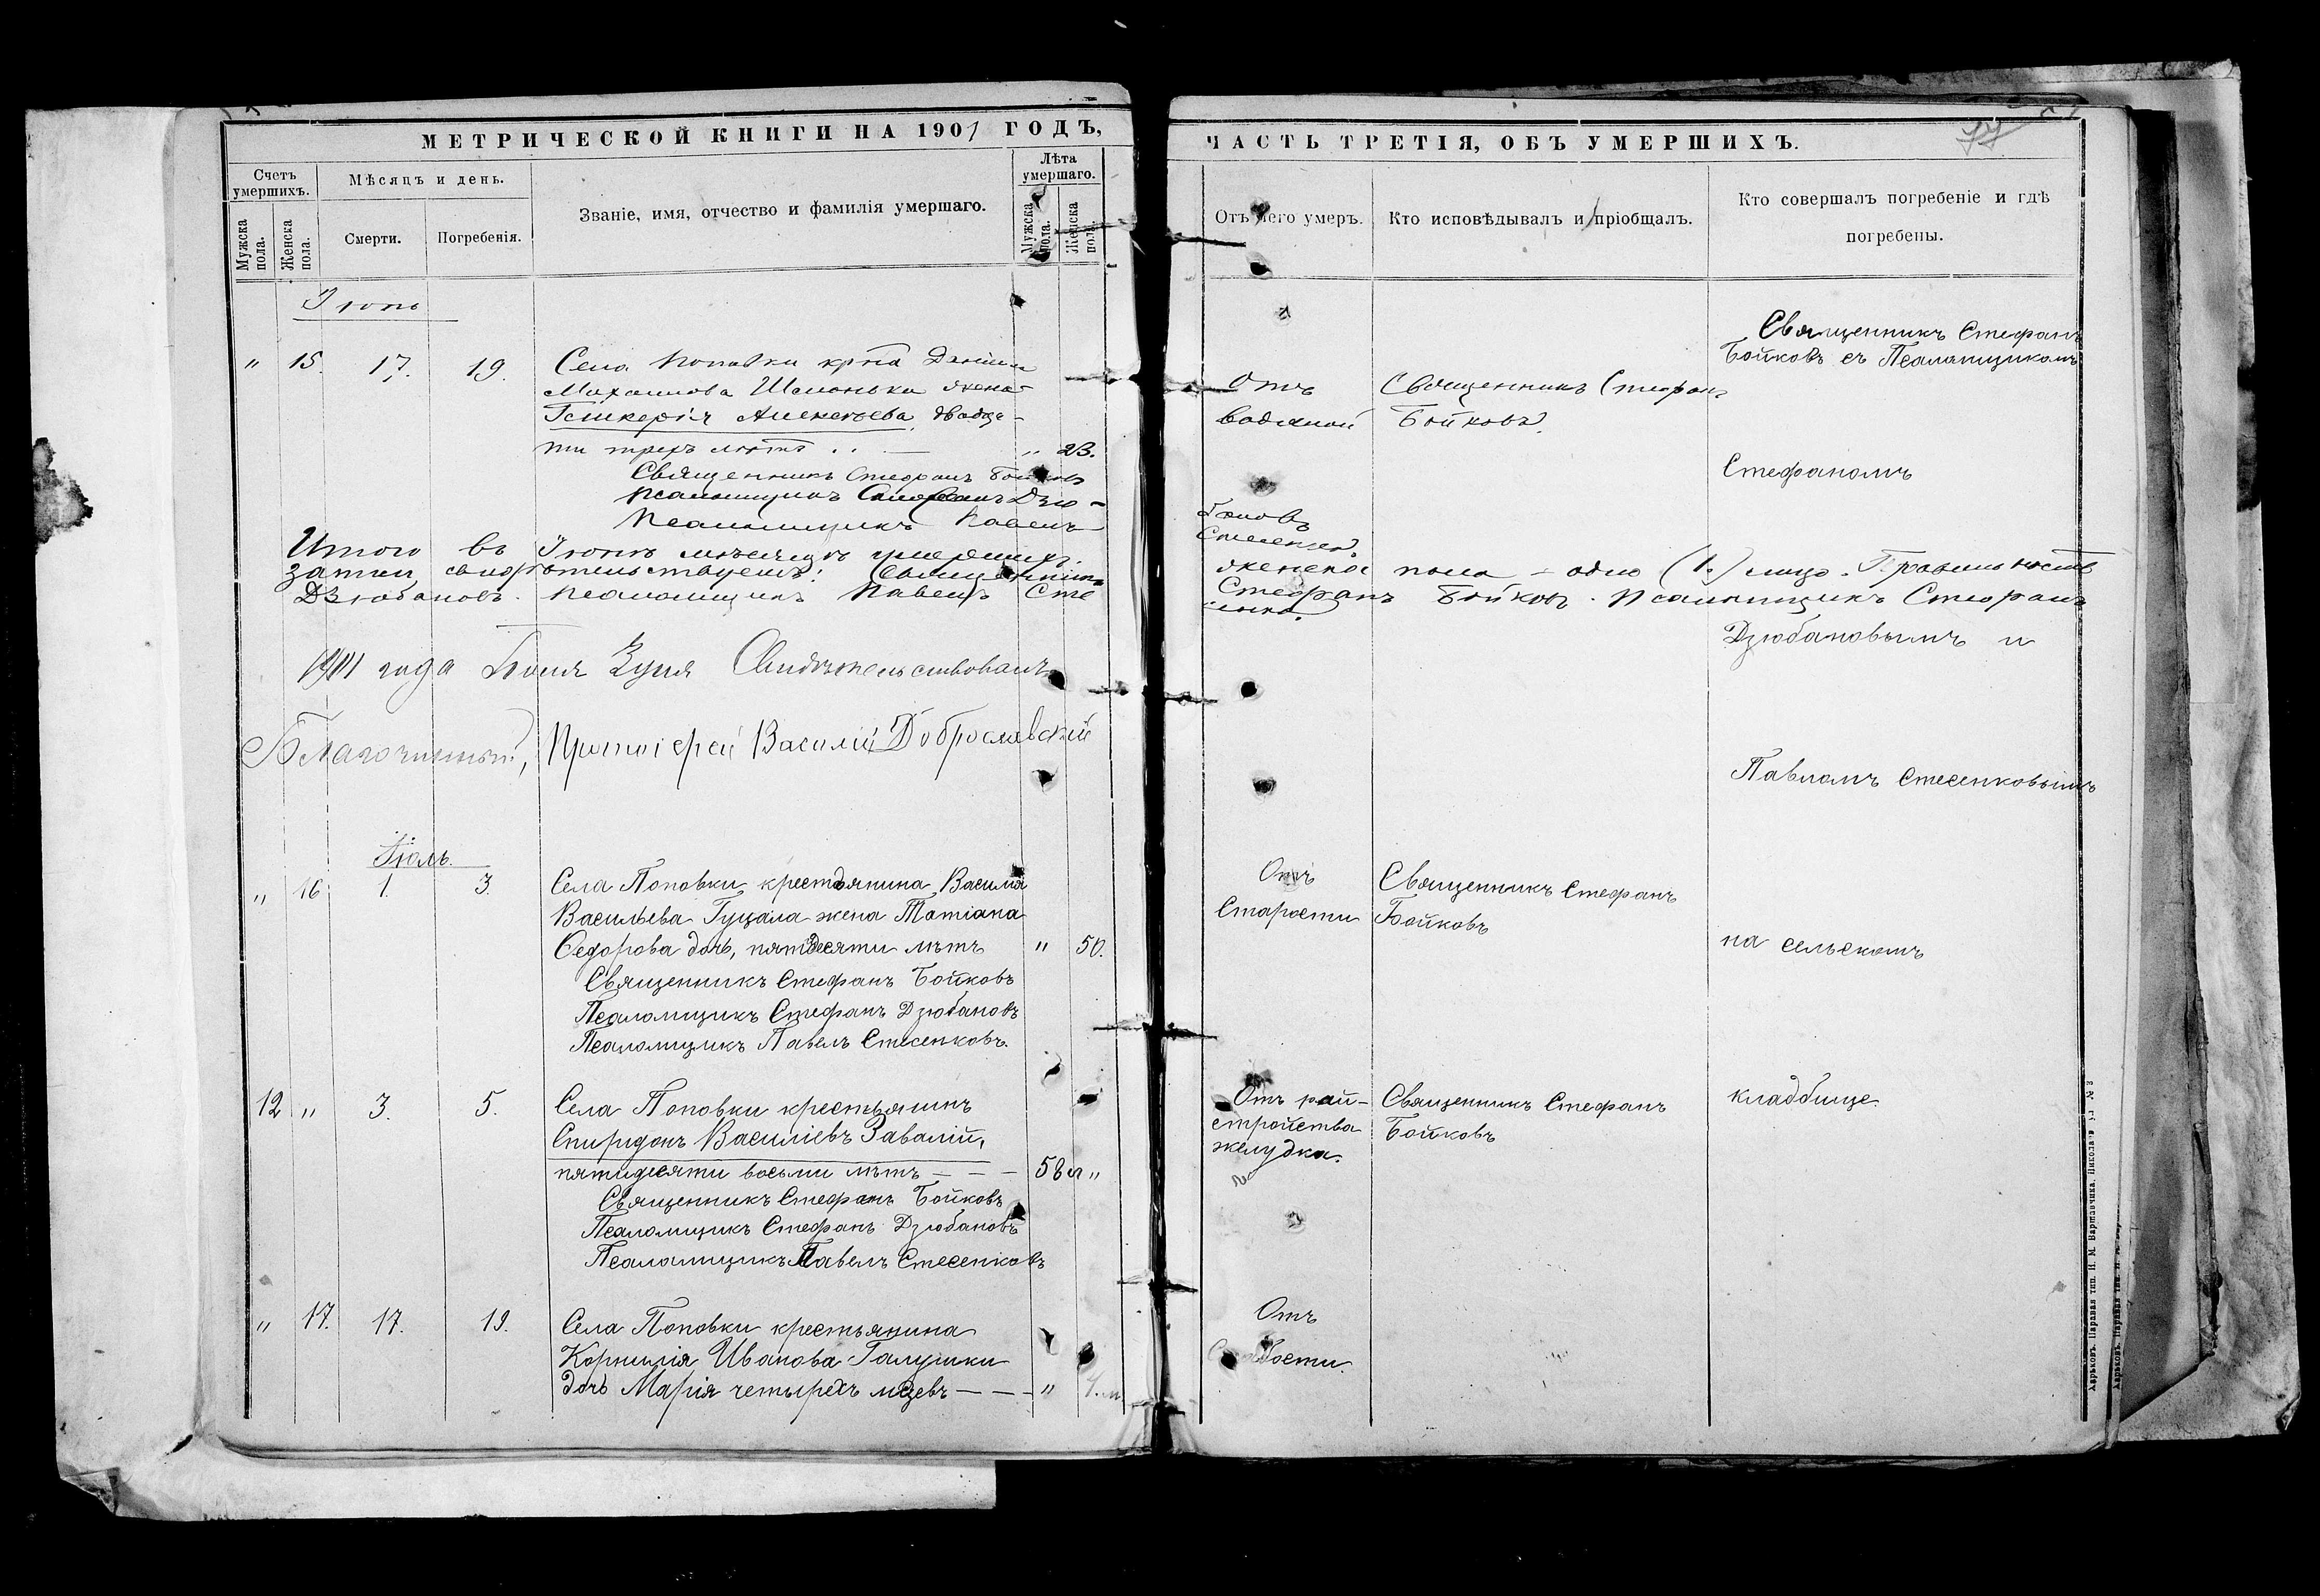 МЕТРИЧЕСКОЙ КНИГИ НА 1901 ГОДЪ,
Счетъ умершихъ.
Мужска пола.
Женска пола.
Мѣсяцъ и день.
Смерти.
Погребенія.
Званіе, имя, отчество и фамилія умершаго.
Лѣта умершаго.
Мужска пола.
Женска пола.
Іюнь
" 15. 17. 19. Села Поповки кр‑на
Михаилова жена
Гликерія Алексѣева, двадца-
ти трехъ лѣтъ " 23.
Священникъ Стефанъ Бойковъ
Псаломщикъ Стефанъ Дзю-
Псаломщикъ Павелъ
Итого въ Іюнѣ мѣсяцѣ умершихъ
записи свидѣтельствуемъ: Священникъ
Дзюбановъ. Псаломщикъ Павелъ Сте
1901 года Іюля Свидѣтельствовалъ
Благочинный, Протоіерей Василій Доброславскій
Іюль.
" 16 1. 3. Села Поповки крестьянина Василія
Васильева Гуцала жена Татіана
Ѳедорова дочь, пятдесяти лѣтъ " 50.
Священникъ Стефанъ Бойковъ
Псаломщикъ Стефанъ Дзюбановъ
Псаломщикъ Павелъ Стесенковъ.
12 " 3. 5. Села Поповки крестьянинъ
Спиридонъ Василіевъ Завалій,
пятидесяти восьми лѣтъ - - - 58 "
Священникъ Стефанъ Бойковъ
Псаломщикъ Стефанъ Дзюбановъ
Псаломщикъ Павелъ Стесенковъ
" 17. 17. 19. Села Поповки крестьянина
Корнилія Иванова Галушки
дочь Марія четырехъ мцевъ - - - " 4. м
ЧАСТЬ ТРЕТІЯ, ОБЪ УМЕРШИХЪ.
Отъ чего умеръ.
Кто исповѣдывалъ и пріобщалъ.
Кто совершалъ погребеніе и гдѣ погребены.
Священникъ Стефанъ
Бойковъ съ Псаломщикомъ
Отъ Священникъ Стефанъ
водяной Бойковъ.
Стефаномъ
женска пола - одно (1.) лицо. Правильность
Стефанъ Бойковъ. Псаломщикъ Стефанъ
Дзюбановымъ и
Павломъ Стесенковымъ
Отъ Священникъ Стефанъ
Старости Бойковъ
на сельскомъ
Отъ рай- Священникъ Стефанъ
стройства Бойковъ
желудка.
кладбище.
Отъ
Слабости.